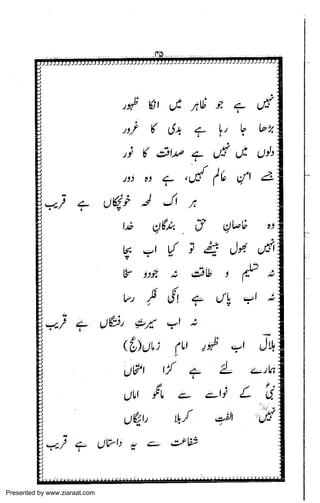 ۴۵
نہیں ہے جو ظاہر میں انکا ظہور
بڑھا جا رہا ہے بدی کا غرور
دلوں میں نہیں ہے صداقت کا نور
جسے امنِ عالم کہیں، ہے وہ دور
ہر اک لمحہ خونچکاں ہے قریب
وہ خاصانِ حق بندگانِ خدا
انہیں بھول بیٹھے تو کیا اب بچا
نہ تسلیم و طاقت نہ جودو سخا
نہ اب پاس ہے انکی فکرِ رسا
نہ اب سیرتِ رفتگاں ہے قریب
ہلالؔ اب ظہورِ امامِ زماں(عج)
ہمارے لئے ہے کڑا امتحاں
نبیؐ کے نواسے سے مانگو اماں
نہیں الفتِ کربلا رائیگاں
شفاعت سے یہ داستاں ہے قریب
Presented by www.ziaraat.com